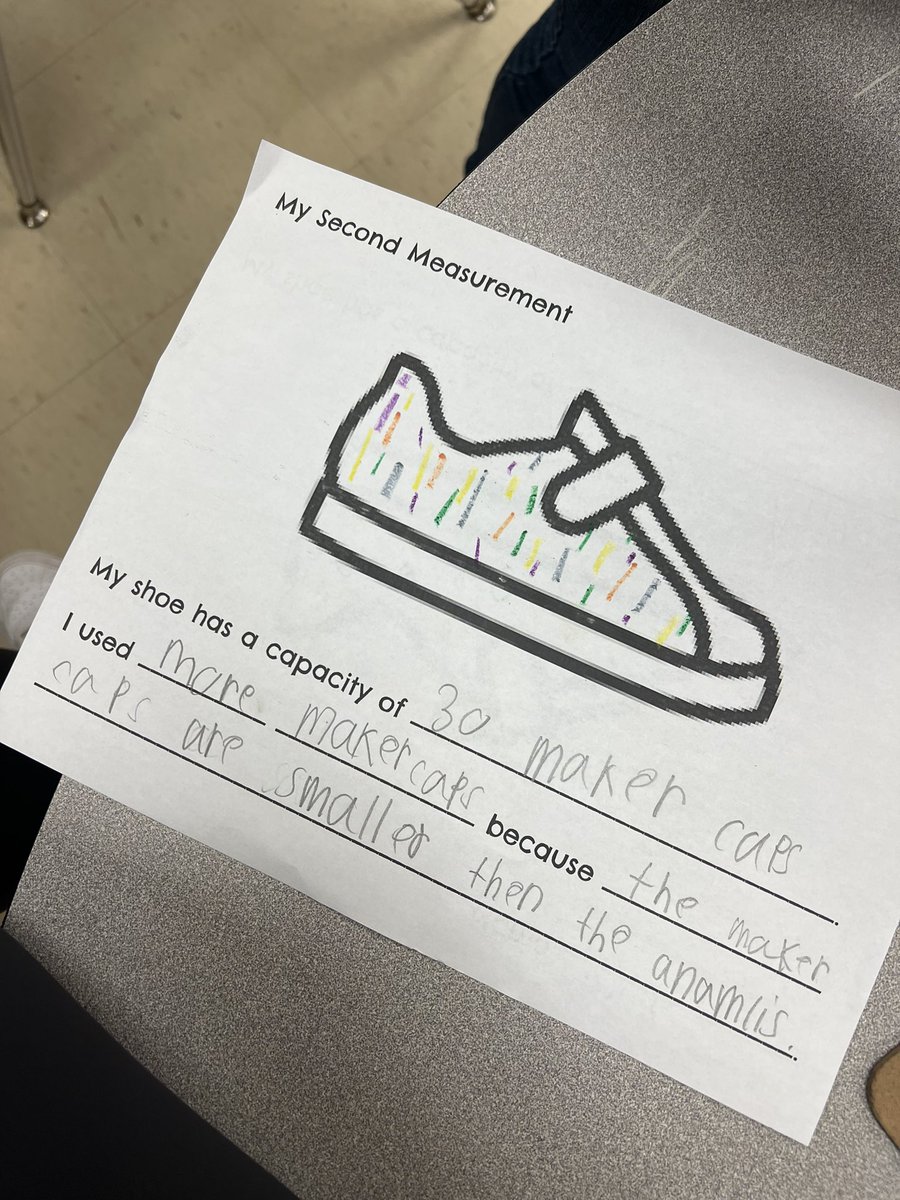 My Second Measurement
My shoe has a capacity of 30 maker caps.
I used more makercaps because the maker
caps are smaller then the anamlis.